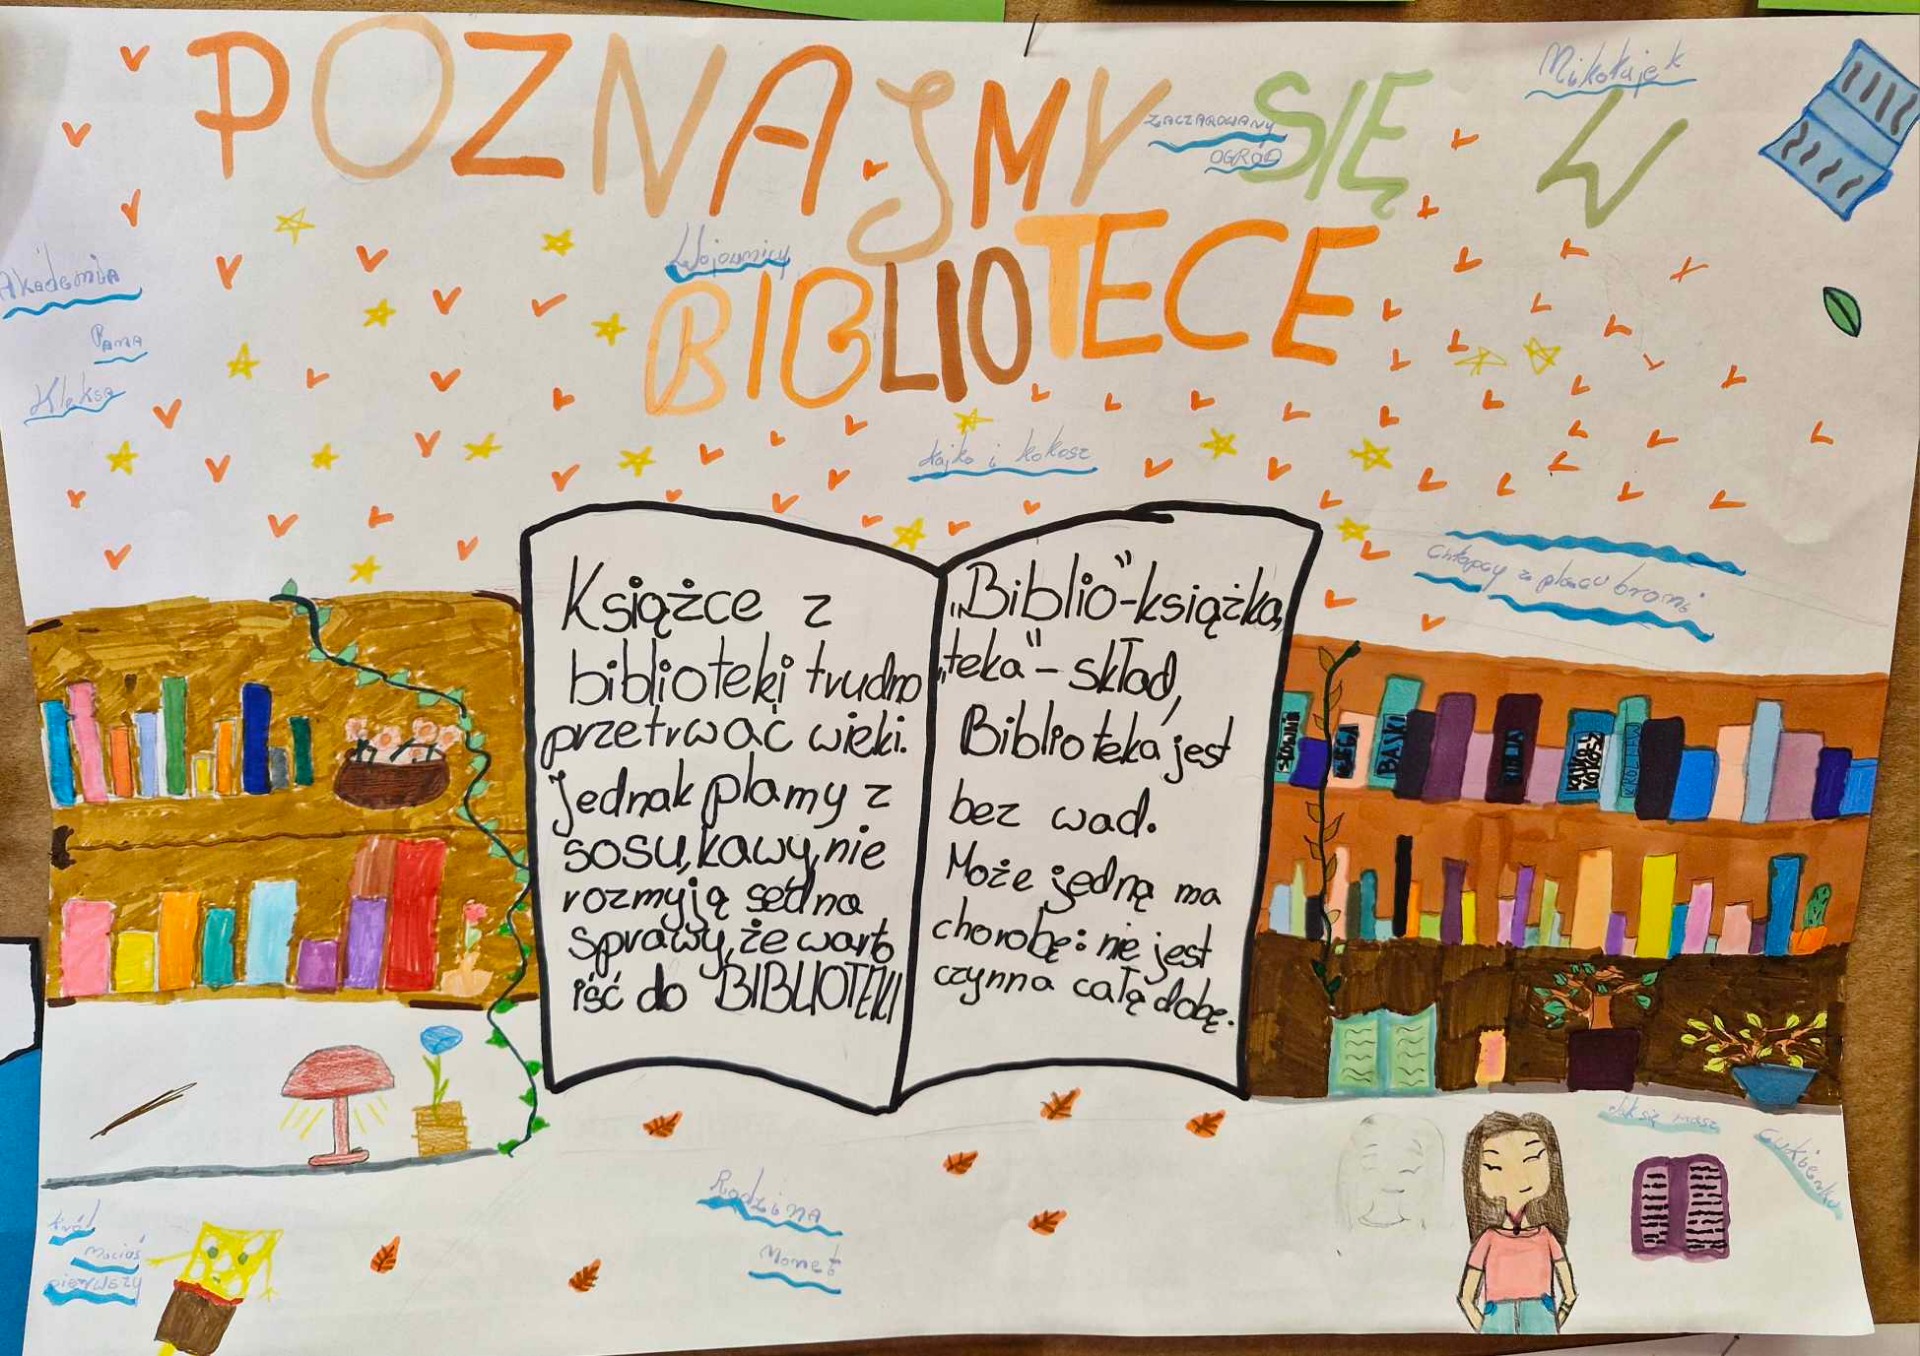 POZNAJMY SIĘ W
BIBLIOTECE
Mikołajek
ZACZAROWANY
OGRÓD
Wojownicy
Akademia
Pana
Kleksa
Kajko i kokosz
Chłopcy z placu broni
Książce z
biblioteki trudno
przetrwać wieki.
Jednak plamy z
sosu, kawy, nie
rozmyją sedna
sprawy, że warto
iść do BIBLIOTEKI
„Biblio"-książka,
„teka"- skład,
Biblioteka jest
bez wad.
Może jedną ma
chorobę: nie jest
czynna całą dobę.
BAŚKI
KAJKO
KOKOSZ
Jak się masz
Rodzina
Monet
król
Maciuś
pierwszy